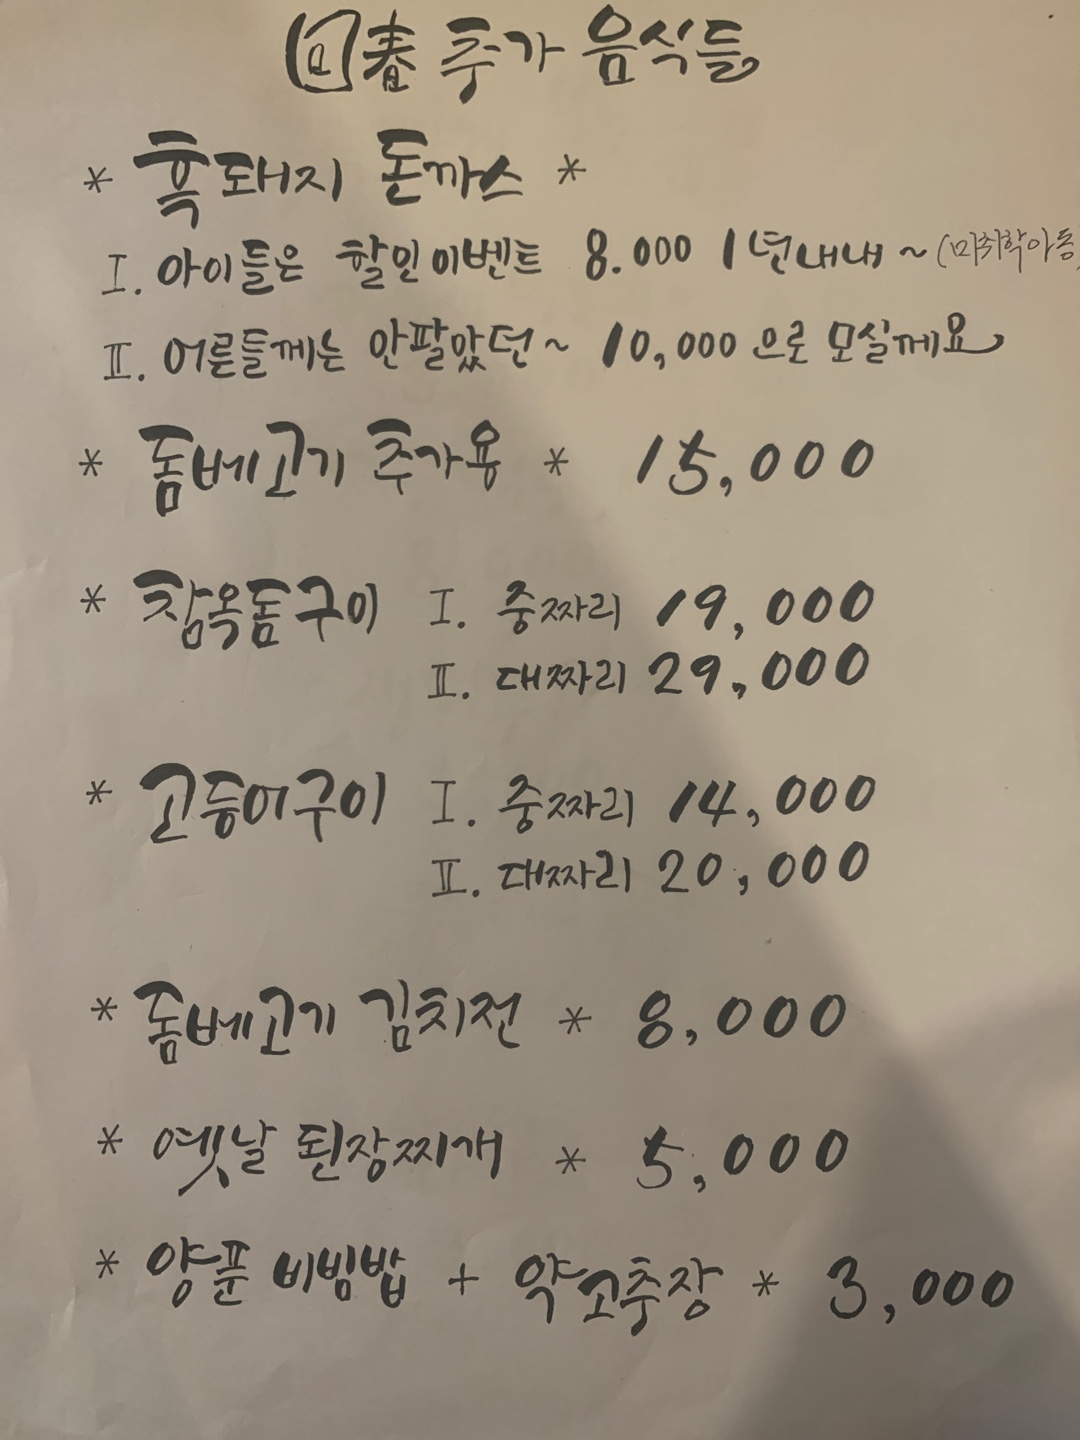 回春 추가 음식들
* 흑돼지 돈까스 *
I. 아이들은 할인이벤트 8.000 1년내내 ~ (미취학아동)
II. 어른들께는 안팔았던~ 10,000 으로 모실께요
* 돔베고기 추가용 * 15,000
* 참옥돔구이 I. 중짜리 19,000
II. 대짜리 29,000
* 고등어구이 I. 중짜리 14,000
II. 대짜리 20,000
* 돔베고기 김치전 * 8,000
* 옛날 된장찌개 * 5,000
* 양푼 비빔밥 + 약고추장 * 3,000